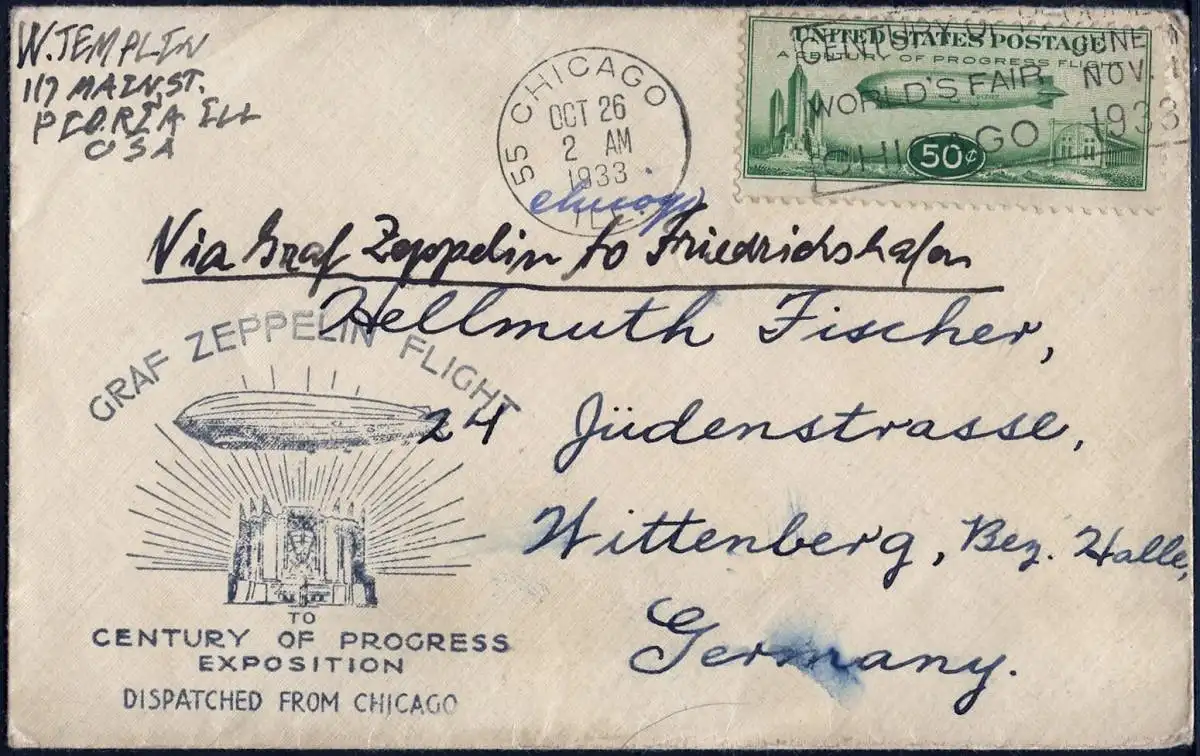 W. TEMPLIN
117 MAIN ST.
PEORIA ILL
USA
55 CHICAGO
OCT 26
2 AM
1933
ILL
chicago
UNITED STATES POSTAGE
A CENTURY OF PROGRESS FLIGHT
50¢
CENTURY OF
WORLD'S FAIR
CHICAGO
JUNE 1
NOV. 1
1933
Via Graf Zeppelin to Friedrichshafen
Hellmuth Fischer,
24 Jüdenstrasse,
Wittenberg, Bez. Halle,
Germany.
GRAF ZEPPELIN FLIGHT
TO
CENTURY OF PROGRESS
EXPOSITION
DISPATCHED FROM CHICAGO